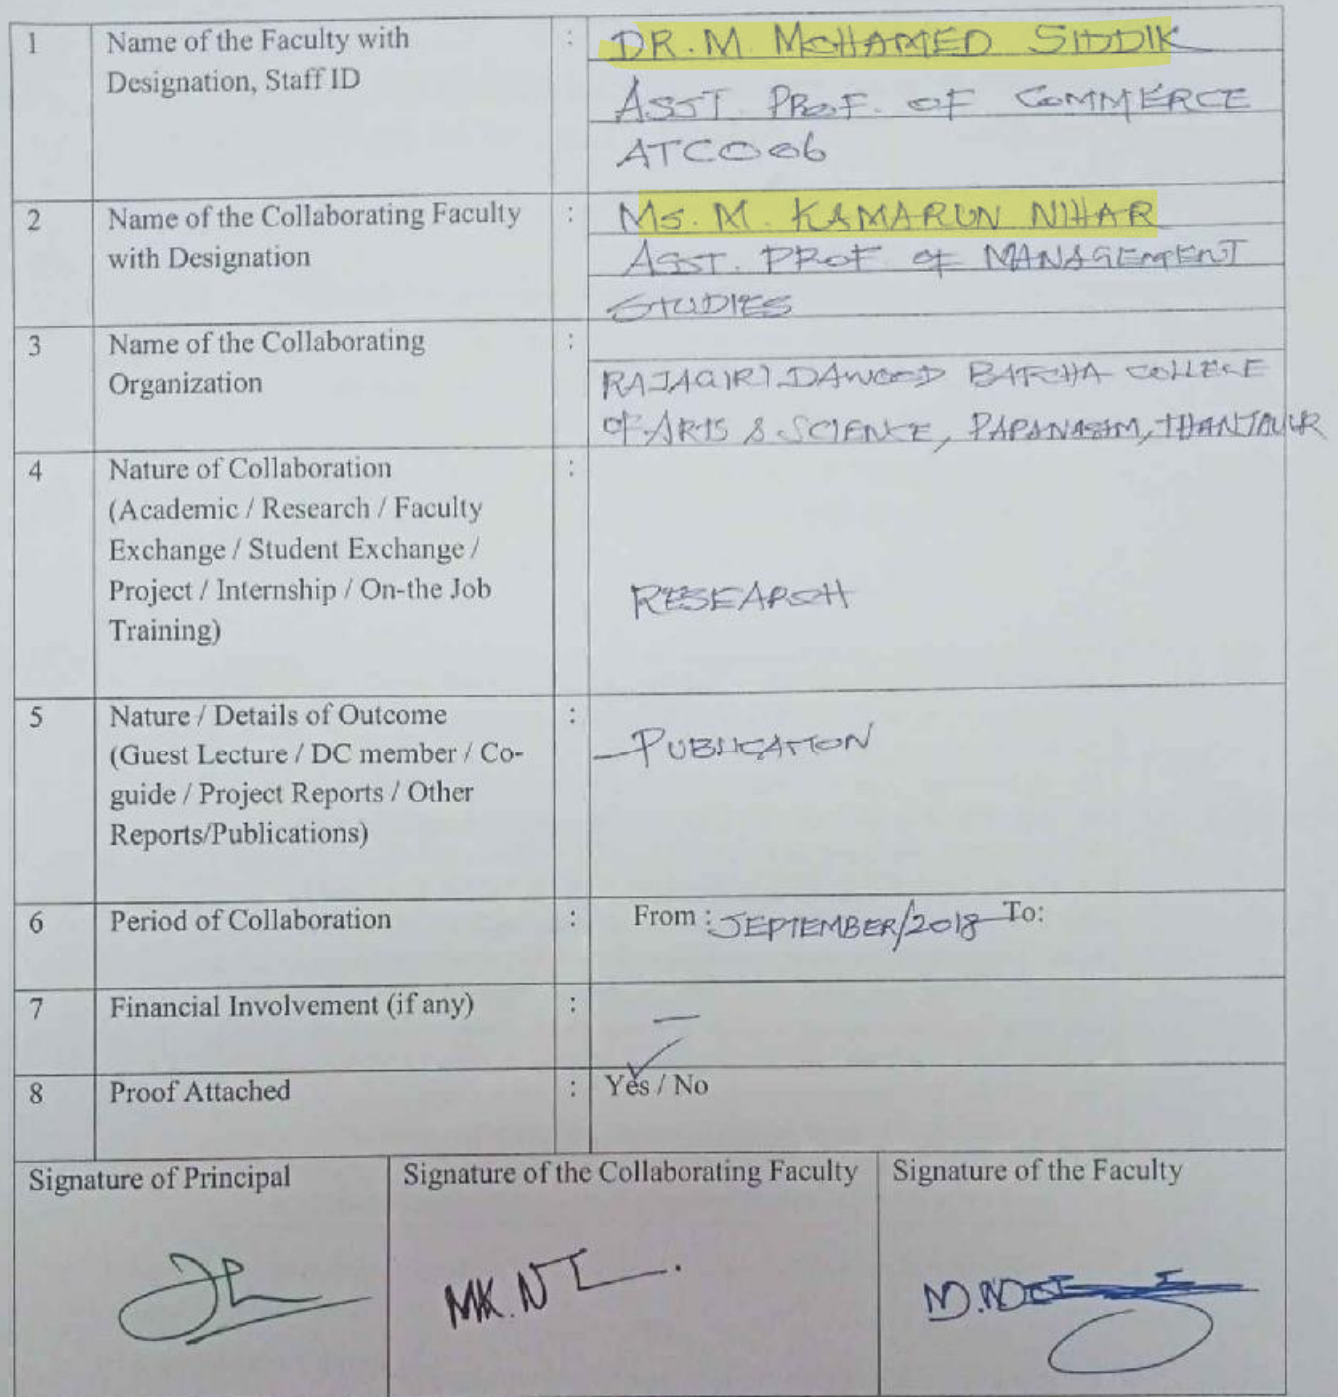 1 Name of the Faculty with : DR. M. MOHAMED SIDDIK
Designation, Staff ID
ASST. PROF. OF COMMERCE
ATCO06
2 Name of the Collaborating Faculty : MS. M. KAMARUN NIHAR
with Designation ASST. PROF OF MANAGEMENT
STUDIES
3 Name of the Collaborating :
Organization RAJAGIRI DAWOOD BATCHA COLLEGE
OF ARTS & SCIENCE, PAPANASAM, THANJAVUR
4 Nature of Collaboration :
(Academic / Research / Faculty
Exchange / Student Exchange /
Project / Internship / On-the Job RESEARCH
Training)
5 Nature / Details of Outcome : PUBLICATION
(Guest Lecture / DC member / Co-
guide / Project Reports / Other
Reports/Publications)
6 Period of Collaboration : From : SEPTEMBER/2018 To:
7 Financial Involvement (if any) : —
8 Proof Attached : Yes / No
Signature of Principal Signature of the Collaborating Faculty Signature of the Faculty